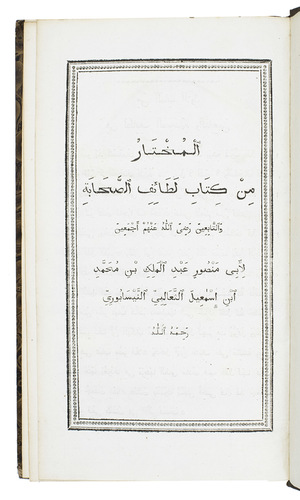 اَلْمُخْتَارُ
مِنْ كِتَابِ لَطَائِفِ ٱلصَّحَابَةِ
وَٱلتَّابِعِينَ رَضِيَ ٱللّٰهُ عَنْهُمْ أَجْمَعِينَ
لِأَبِي مَنْصُورٍ عَبْدِ ٱلْمَلِكِ بْنِ مُحَمَّدِ
ٱبْنِ إِسْمٰعِيلَ ٱلثَّعَالِبِيِّ ٱلنَّيْسَابُورِيِّ
رَحِمَهُ ٱللّٰهُ